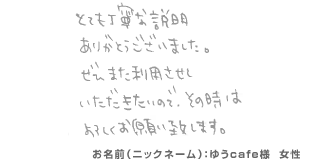 とても丁寧な説明
ありがとうございました。
ぜひまた利用させし
いただきたいので、その時は
よろしくお願い致します。
お名前(ニックネーム):ゆうcafe様 女性